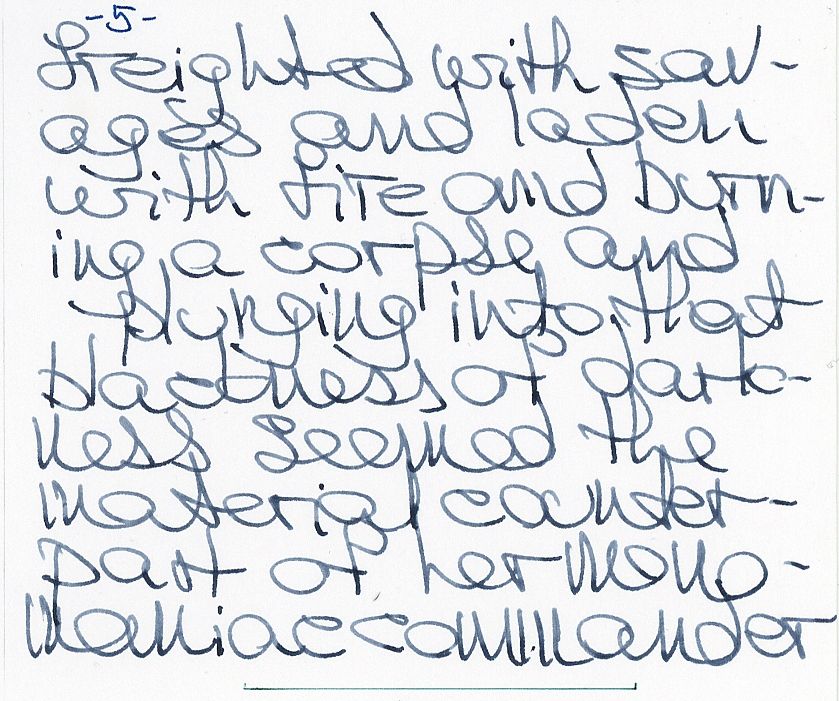 -5-
freighted with sav-
ages and laden
with fire and burn-
ing a corpse and
plunging into that
blackness of dark-
ness seemed the
material counter-
part of her mono-
maniac commander